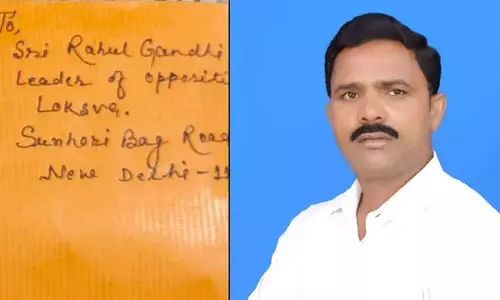 To,
Sri Rahul Gandhi
Leader of oppositi
Loksva.
Sunheri Bag Road
New Delhi-11